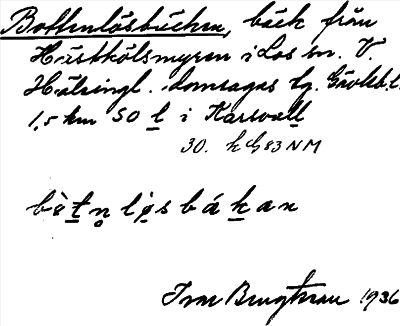 Bottenlösbäcken, bäck från
Hästkölsmyren i Los sn. V.
Hälsingl. domsagas tg. Gävleb. l.
1,5 km SO l i Karsvall
30. h G 83 NM
bò̀tn̥løsbákan
Ivar 1936